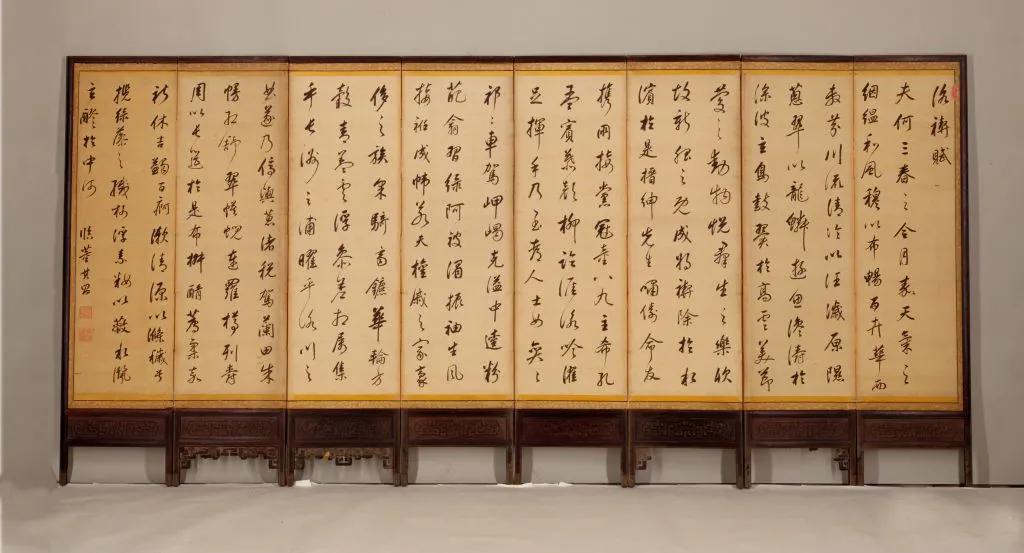 洛禊賦
夫何三春之令月嘉天氣之
絪縕和風穆以布暢百卉華而
敷芬川流清泠以汪濊原隰
蔥翠以龍鱗遊魚瀺灂於
淥波玄鳥鼓翼於高雲美節
慶之動物悅羣生之樂欣
故新服之既成將禊除於水
濱於是搢紳先生嘯儔命友
攜朋接黨冠童八九主希孔
墨賓慕顏柳臨涯詠吟濯
足揮手乃至都人士女奕奕
祁祁車駕岬嵑充溢中逵粉
葩翕習緣阿被湄振袖生風
接袵成帷若夫權戚之家豪
侈之族采騎齊鑣華輪方
轂青蓋雲浮參差相屬集
乎長洲之浦曜乎洛川之
曲遂乃停輿蕙渚稅駕蘭田朱
幔虹舒翠幕蜺連羅樽列爵
周以長筵於是布椒醑薦柔嘉
祈休吉蠲百痾漱清源以滌穢兮
攬綠藻之纖柯浮素粒以蔽水灑
玄醪於中河
臨董其昌